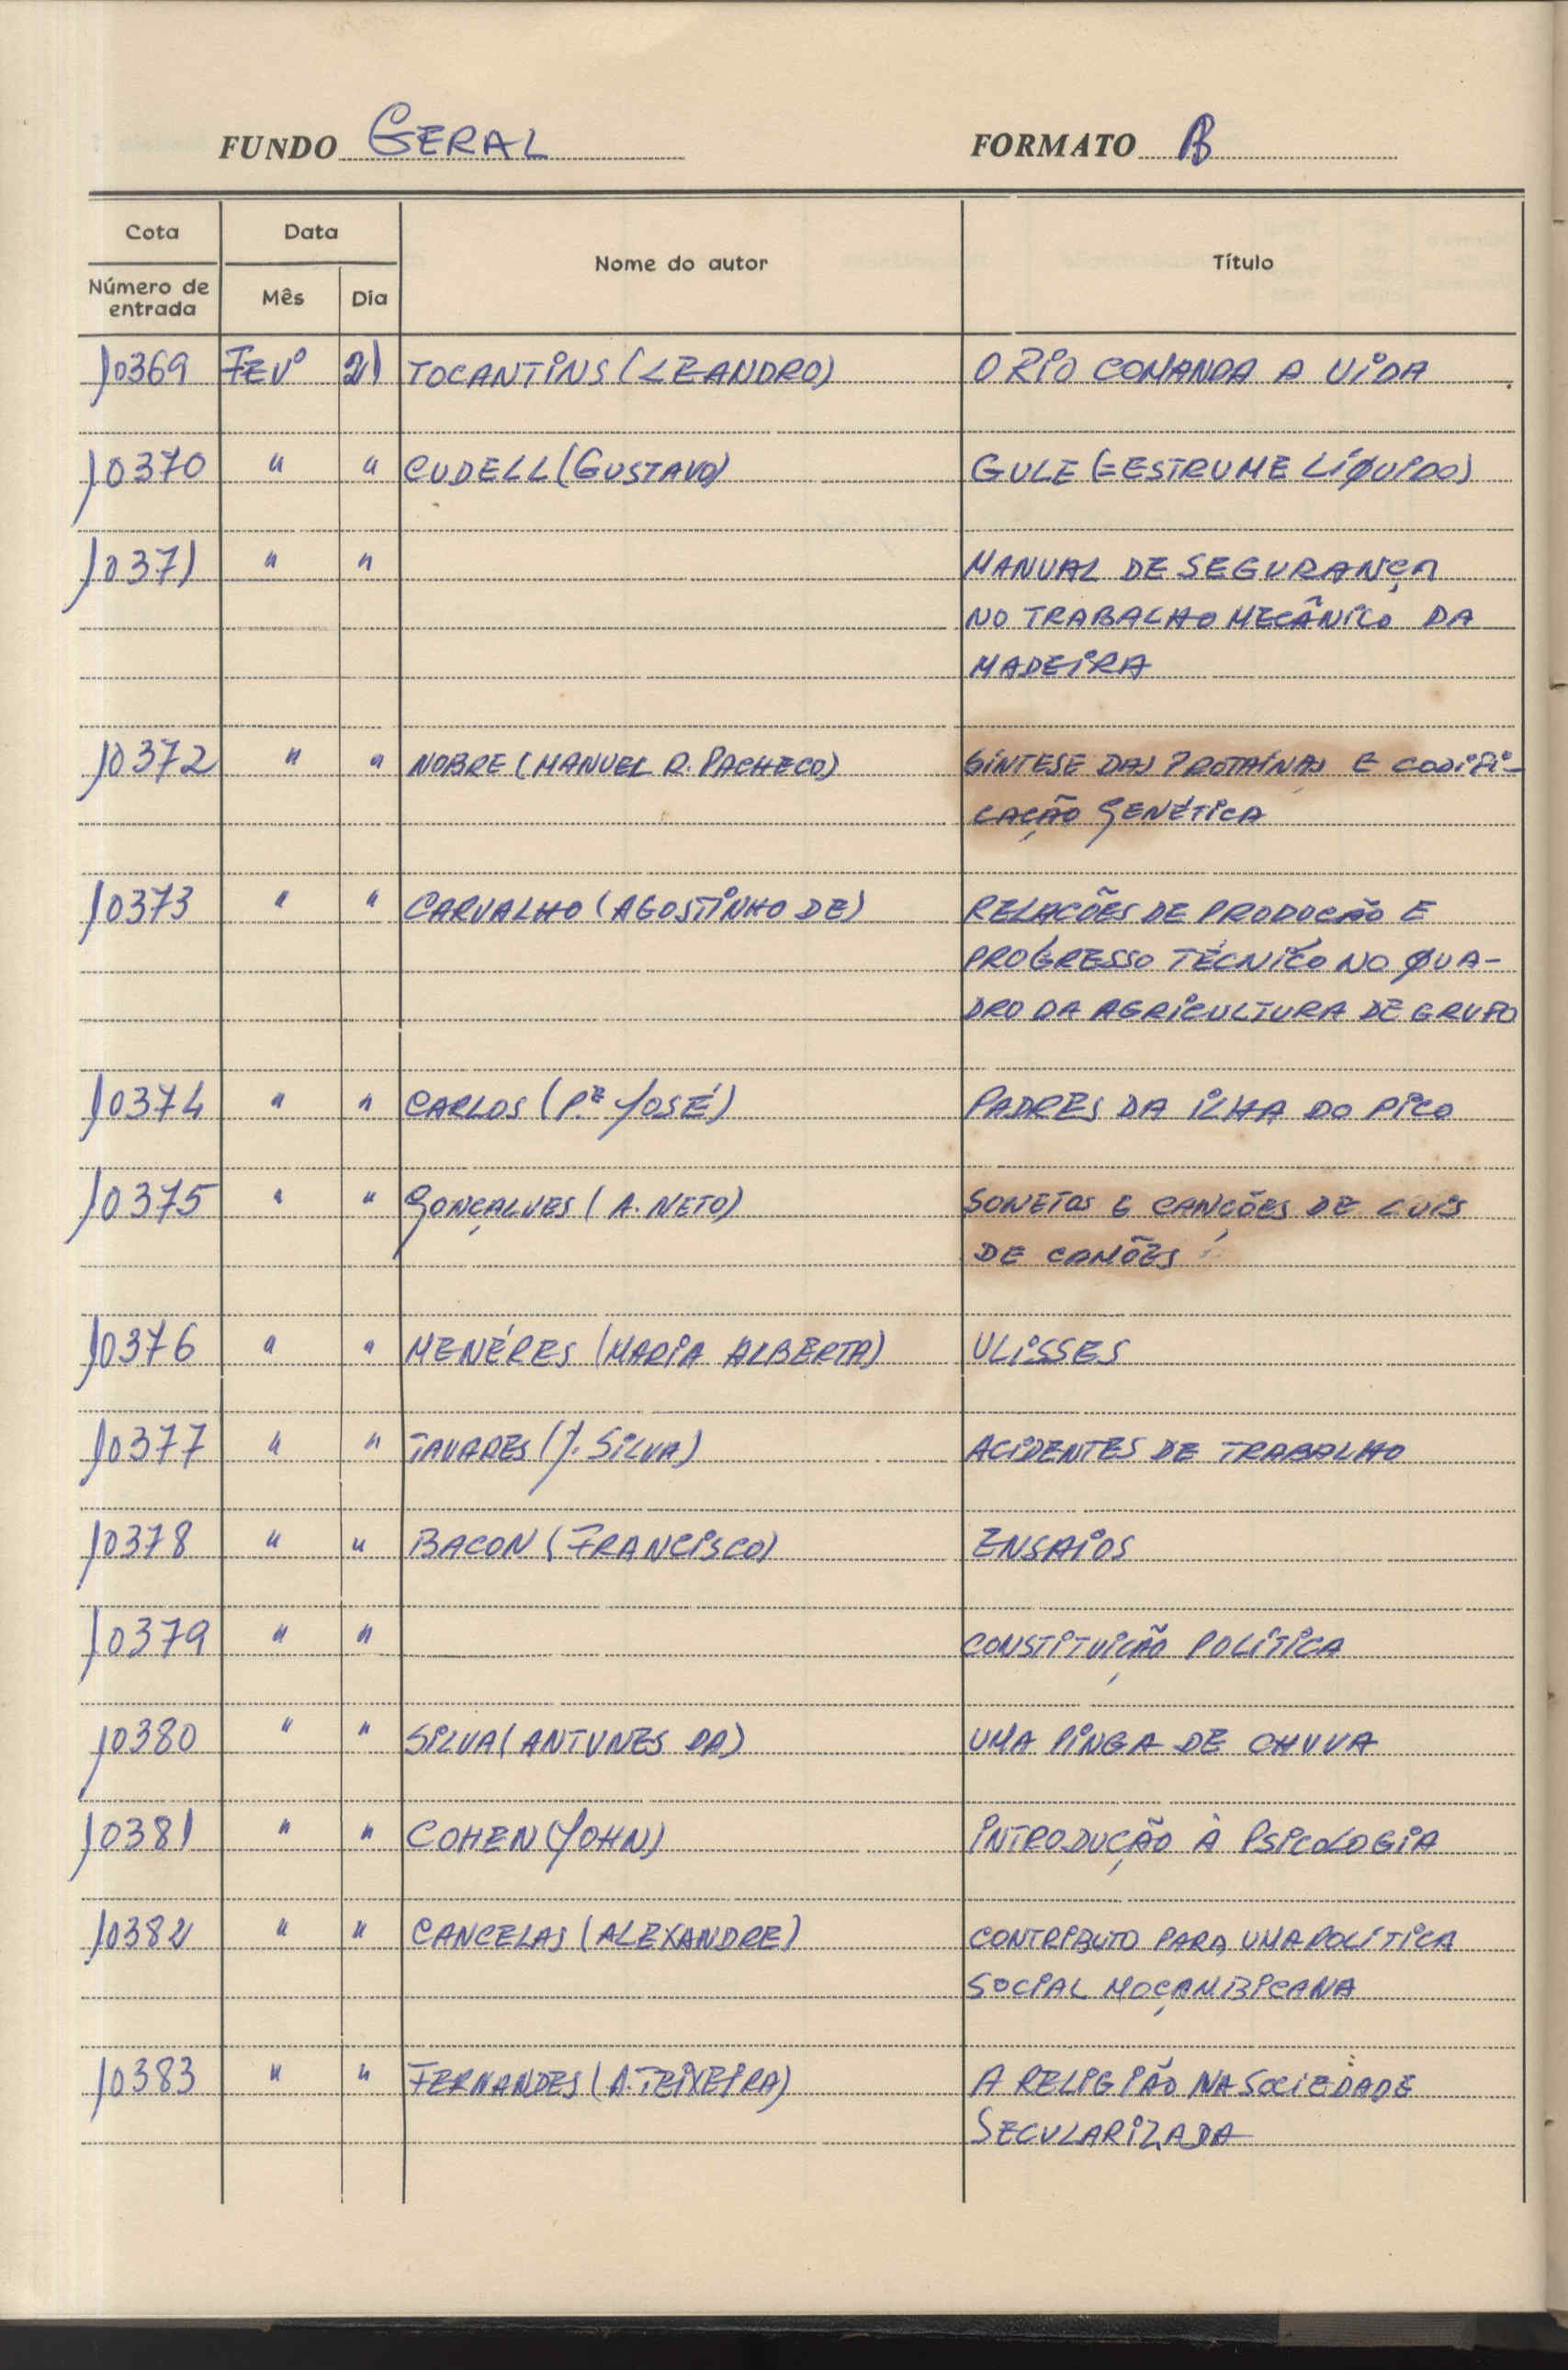 FUNDO GERAL FORMATO B
Cota Data Nome do autor Título
Número de entrada Mês Dia
10369 FEVº 21 TOCANTINS (LEANDRO) O RIO COMANDA A VIDA
10370 " " CUDELL (GUSTAVO) GULE (=ESTRUME LÍQUIDO)
10371 " " MANUAL DE SEGURANÇA
NO TRABALHO MECÂNICO DA
MADEIRA
10372 " " NOBRE (MANUEL R. PACHECO) SÍNTESE DAS PROTAÍNAS E CODIFI-
CAÇÃO GENÉTICA
10373 " " CARVALHO (AGOSTINHO DE) RELAÇÕES DE PRODUÇÃO E
PROGRESSO TÉCNICO NO QUA-
DRO DA AGRICULTURA DE GRUPO
10374 " " CARLOS (P.E JOSÉ) PADRES DA ILHA DO PICO
10375 " " GONÇALVES (A. NETO) SONETOS E CANÇÕES DE LUIS
DE CAMÕES
10376 " " MENÉRES (MARIA ALBERTA) ULISSES
10377 " " TAVARES (J. SILVA) ACIDENTES DE TRABALHO
10378 " " BACON (FRANCISCO) ENSAIOS
10379 " " CONSTITUIÇÃO POLÍTICA
10380 " " SILVA (ANTUNES DA) UMA PINGA DE CHUVA
10381 " " COHEN (JOHN) INTRODUÇÃO À PSICOLOGIA
10382 " " CANCELAS (ALEXANDRE) CONTRIBUTO PARA UMA POLÍTICA
SOCIAL MOÇAMBICANA
10383 " " FERNANDES (A. TEIXEIRA) A RELIGIÃO NA SOCIEDADE
SECULARIZADA